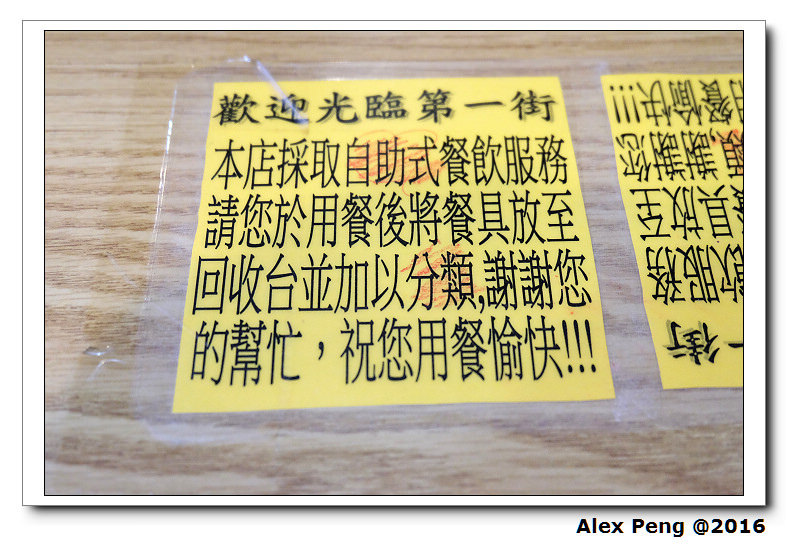 歡迎光臨第一街
本店採取自助式餐飲服務
請您於用餐後將餐具放至
回收台並加以分類,謝謝您
的幫忙,祝您用餐愉快!!!
餐愉快!!!
謝謝您
放至
服務
一街
Alex Peng @2016